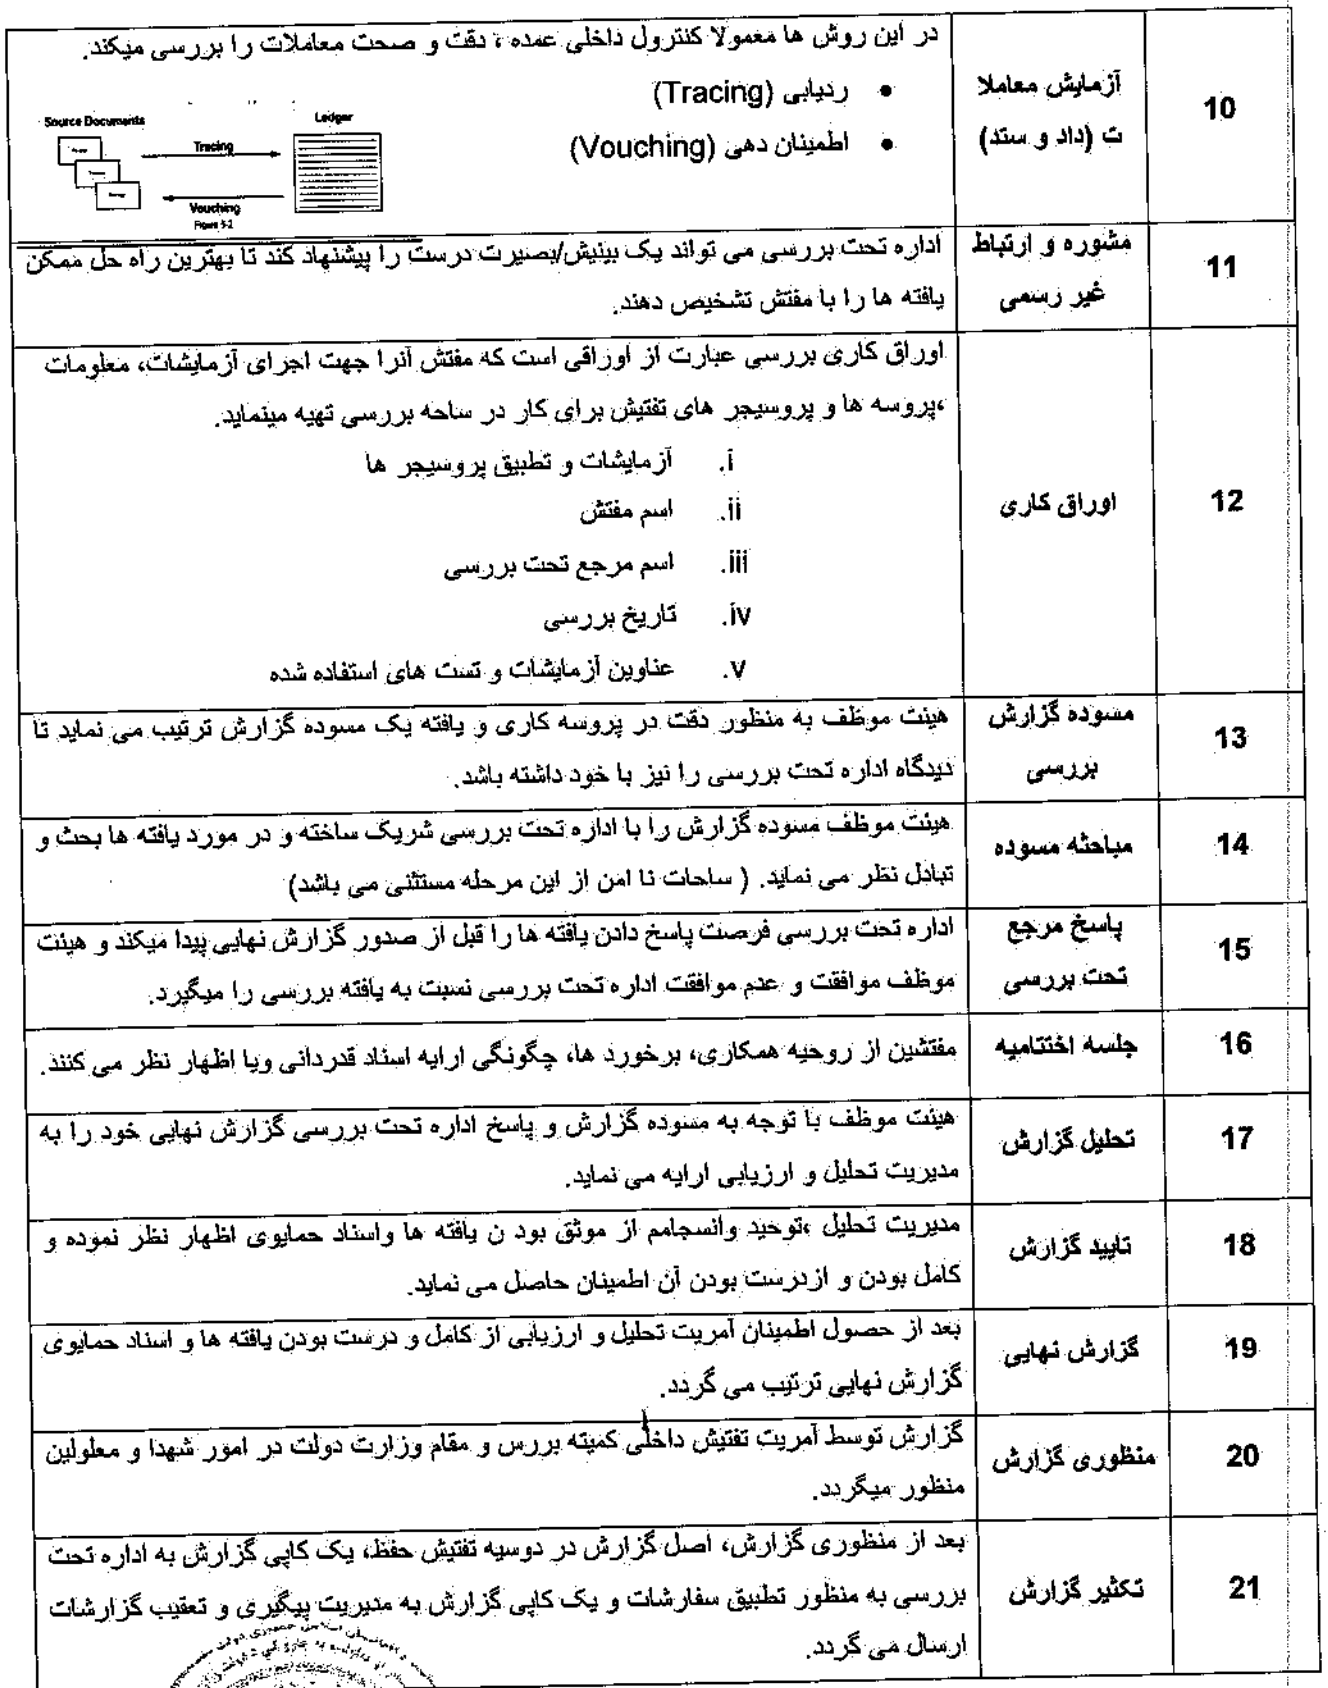 10
آزمایش معاملا
ت (داد و ستد)
در این روش ها معمولا کنترول داخلی عمده ، دقت و صحت معاملات را بررسی میکند.
• ردیابی (Tracing)
• اطمینان دهی (Vouching)
Source Documents
Ledger
Tracing
Vouching
11
مشوره و ارتباط
غیر رسمی
اداره تحت بررسی می تواند یک بینش/بصیرت درست را پیشنهاد کند تا بهترین راه حل ممکن
یافته ها را با مفتش تشخیص دهند.
12
اوراق کاری
اوراق کاری بررسی عبارت از اوراقی است که مفتش آنرا جهت اجرای آزمایشات، معلومات
،پروسه ها و پروسیجر های تفتیش برای کار در ساحه بررسی تهیه مینماید.
i. آزمایشات و تطبیق پروسیجر ها
ii. اسم مفتش
iii. اسم مرجع تحت بررسی
iv. تاریخ بررسی
v. عناوین آزمایشات و تست های استفاده شده
13
مسوده گزارش
بررسی
هیئت موظف به منظور دقت در پروسه کاری و یافته یک مسوده گزارش ترتیب می نماید تا
دیدگاه اداره تحت بررسی را نیز با خود داشته باشد.
14
مباحثه مسوده
هیئت موظف مسوده گزارش را با اداره تحت بررسی شریک ساخته و در مورد یافته ها بحث و
تبادل نظر می نماید. ( ساحات نا امن از این مرحله مستثنی می باشد)
15
پاسخ مرجع
تحت بررسی
اداره تحت بررسی فرصت پاسخ دادن یافته ها را قبل از صدور گزارش نهایی پیدا میکند و هیئت
موظف موافقت و عدم موافقت اداره تحت بررسی نسبت به یافته بررسی را میگیرد.
16
جلسه اختتامیه
مفتشین از روحیه همکاری، برخورد ها، چگونگی ارایه اسناد قدردانی ویا اظهار نظر می کنند.
17
تحلیل گزارش
هیئت موظف با توجه به مسوده گزارش و پاسخ اداره تحت بررسی گزارش نهایی خود را به
مدیریت تحلیل و ارزیابی ارایه می نماید.
18
تایید گزارش
مدیریت تحلیل ،توحید وانسجامم از موثق بود ن یافته ها واسناد حمایوی اظهار نظر نموده و
کامل بودن و ازدرست بودن آن اطمینان حاصل می نماید.
19
گزارش نهایی
بعد از حصول اطمینان آمریت تحلیل و ارزیابی از کامل و درست بودن یافته ها و اسناد حمایوی
گزارش نهایی ترتیب می گردد.
20
منظوری گزارش
گزارش توسط آمریت تفتیش داخلی کمیته بررس و مقام وزارت دولت در امور شهدا و معلولین
منظور میگردد.
21
تکثیر گزارش
بعد از منظوری گزارش، اصل گزارش در دوسیه تفتیش حفظ، یک کاپی گزارش به اداره تحت
بررسی به منظور تطبیق سفارشات و یک کاپی گزارش به مدیریت پیگیری و تعقیب گزارشات
ارسال می گردد.